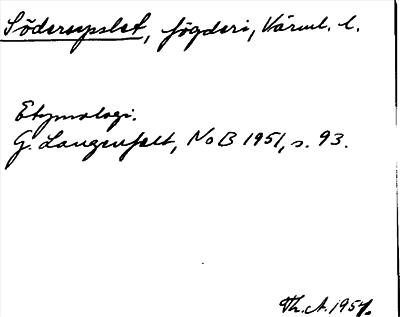 Södersysslet, fögderi, Värml. l.
Etymologi.
G. Langenfelt, NoB 1951, s. 93.
Th. A. 1957.